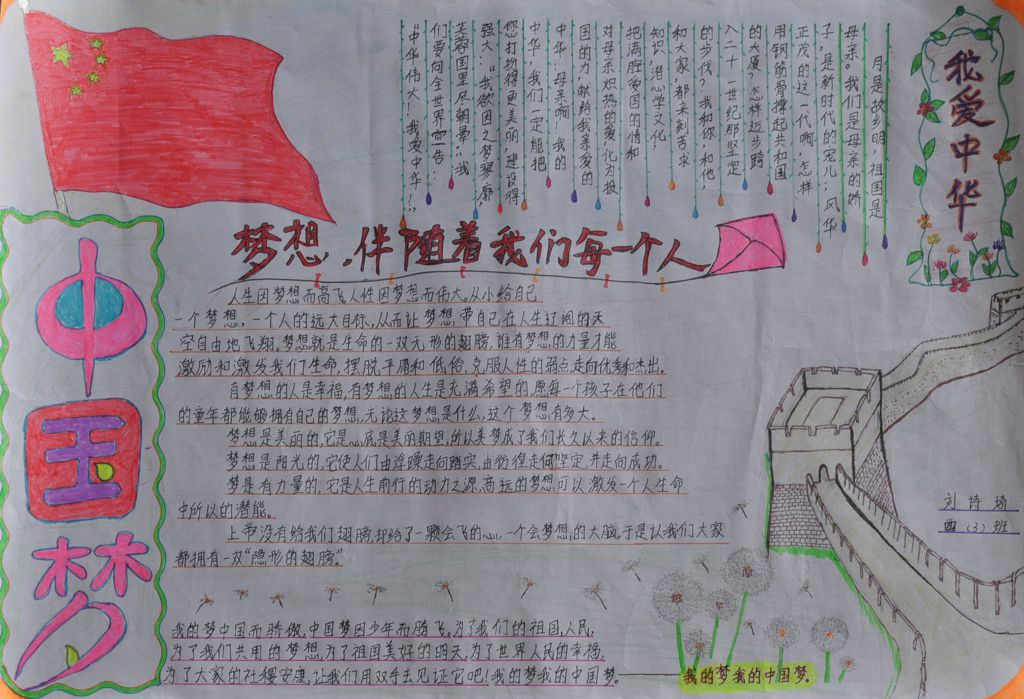 中国梦
我爱中华
月是故乡明，祖国是
母亲。我们是母亲的娇
子，是新时代的宠儿；风华
正茂的这一代啊，怎样
用钢筋骨撑起共和国
的大厦？怎样迈步跨
入二十一世纪那坚定
的步伐？我和你，和他，
和大家，都来刻苦求
知识，潜心学文化，
把满腔爱国的情和
对母亲炽热的爱化为报
国的力，献给我亲爱的
中华：母亲啊！我的
中华，我们一定能把
您打扮得更美丽，建设得
强大：“我欲因之梦寥廓，
芙蓉国里尽朝晖”，我
们要向全世界告：
“中华伟大！我爱中华！”
梦想，伴随着我们每一个人
人生因梦想而高飞人性因梦想而伟大。从小给自己
一个梦想，一个人的远大目标，从而让梦想带自己在人生辽阔的天
空自由地飞翔。梦想就是生命的一双无形的翅膀，唯有梦想的力量才能
激励和激发我们生命，摆脱平庸和低俗，克服人性的弱点走向优秀和杰出。
有梦想的人是幸福，有梦想的人生是充满希望的，愿每一个孩子在他们
的童年都能够拥有自己的梦想，无论这梦想是什么，这个梦想有多大。
梦想是美丽的，它是心底是美丽期望，所以美梦成了我们长久以来的信仰。
梦想是阳光的，它使人们由浮躁走向踏实，由彷徨走向坚定，并走向成功。
梦是有力量的，它是人生前行的动力之源，高远的梦想可以激发一个人生命
中所以的潜能。
上帝没有给我们翅膀，却给了一颗会飞的心，一个会梦想的大脑。于是让我们大家
都拥有一双“隐形的翅膀”
我的梦中国而骄傲，中国梦因少年而腾飞，为了我们的祖国，人民，
为了我们共用的梦想，为了祖国美好的明天，为了世界人民的幸福，
为了大家的社稷安康，让我们用双手去见证它吧！我的梦我的中国梦。
我的梦我的中国梦.
刘诗琦
四（3）班